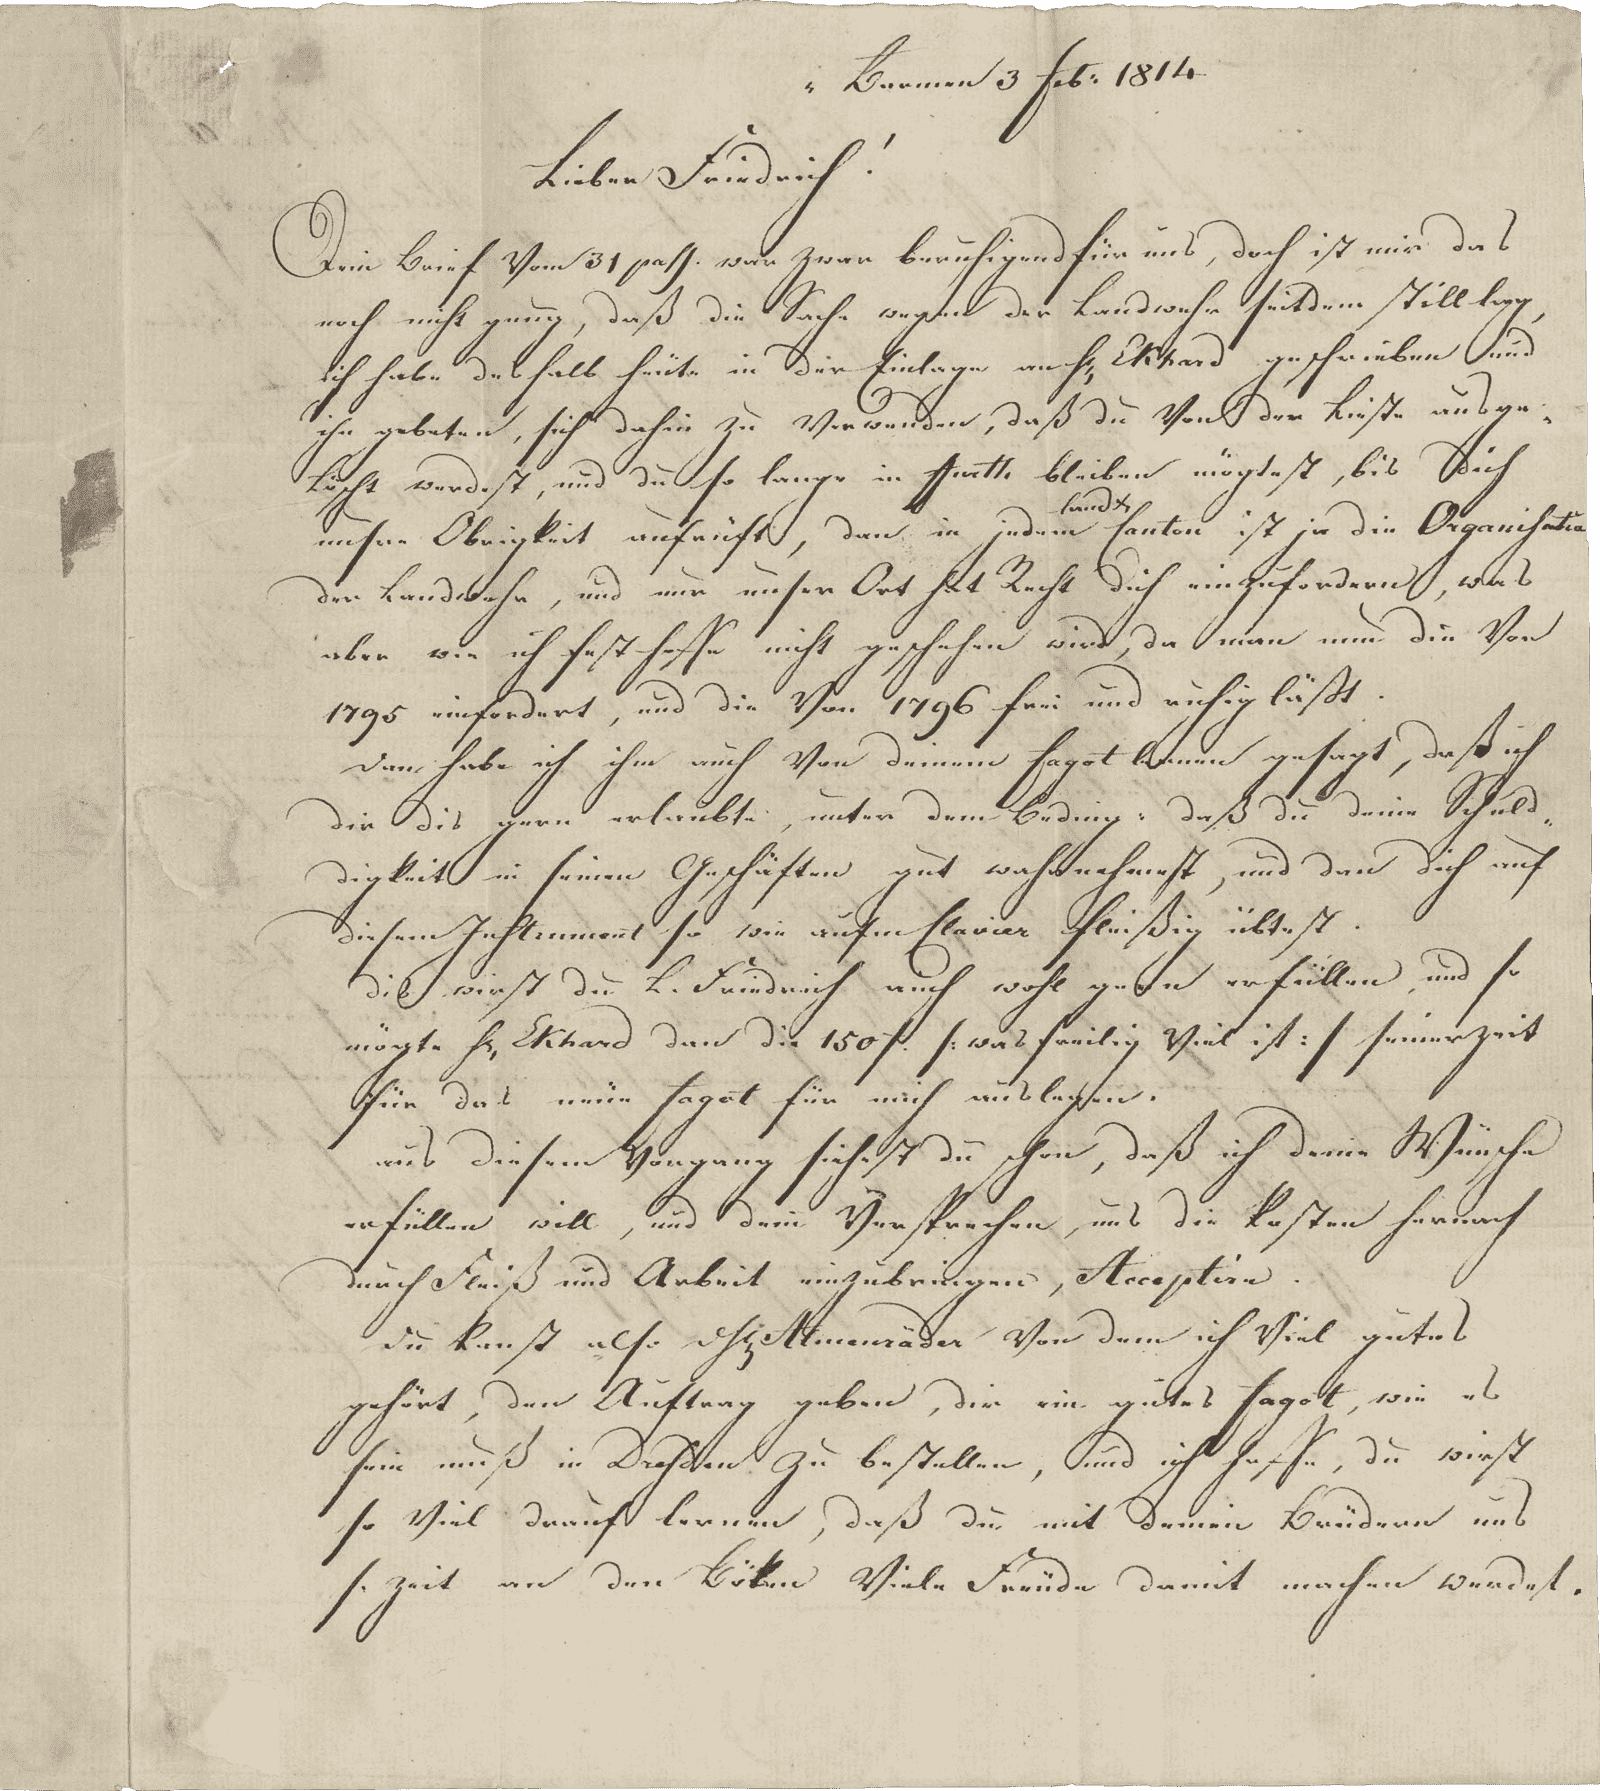 Barmen 3 Feb: 1814
Lieber Friedrich!
Dein Brief vom 31 pass. war zwar beruhigend für uns, doch ist mir das
noch nicht genug, daß die Sache wegen der Landwehr seitdem still lag,
ich habe deshalb heüte in der Einlage an Hr Ekhard geschrieben und
ihn gebeten, sich dahin zu verwenden, daß du von der Lieste ausge-
löscht werdest, und du so lange in bleiben mögtest, bis dich
unsre Obrigkeit aufrüft, dan in jedem Canton ist ja die Organisation
der Landwehr, und nur unser Ort hat Recht dich einzufordern, was
aber wie ich fest hoffe nicht geschehen wird, da man nun die von
1795 einfordert, und die von 1796 frei und ruhig läßt.
dan habe ich ihm auch von deinem Fagot lernen gesagt, daß ich
dir dis gern erlaubte, unter dem Beding: daß du deine Schuld-
digkeit in seinen Geschäften gut wahrnehmest, und dan dich auf
diesem Instrument so wie aufm Clavier fleißig übtest.
dis wirst du L. Friedrich auch wohl gern erfüllen, und so
mögte Hr Ekhard dan die 150 f. /: was freilig viel ist :/ seinerzeit
für das neüe Fagot für mich auslegen.
aus diesem Vorgang siehest du schon, daß ich deine Wünsche
erfüllen will, und dein Versprechen, uns die Kosten hernach
durch Fleiß und Arbeit einzubringen, Acceptire.
du kanst also Almenräder von dem ich viel gutes
gehört, den Auftrag geben, dir ein gutes Fagot, wie es
sein muß in Dresden zu bestellen, und ich hoffe, du wirst
so viel drauf lernen, daß du mit deinen Brüdern uns
s. Zeit an den Böken viele Freüde damit machen werdest.